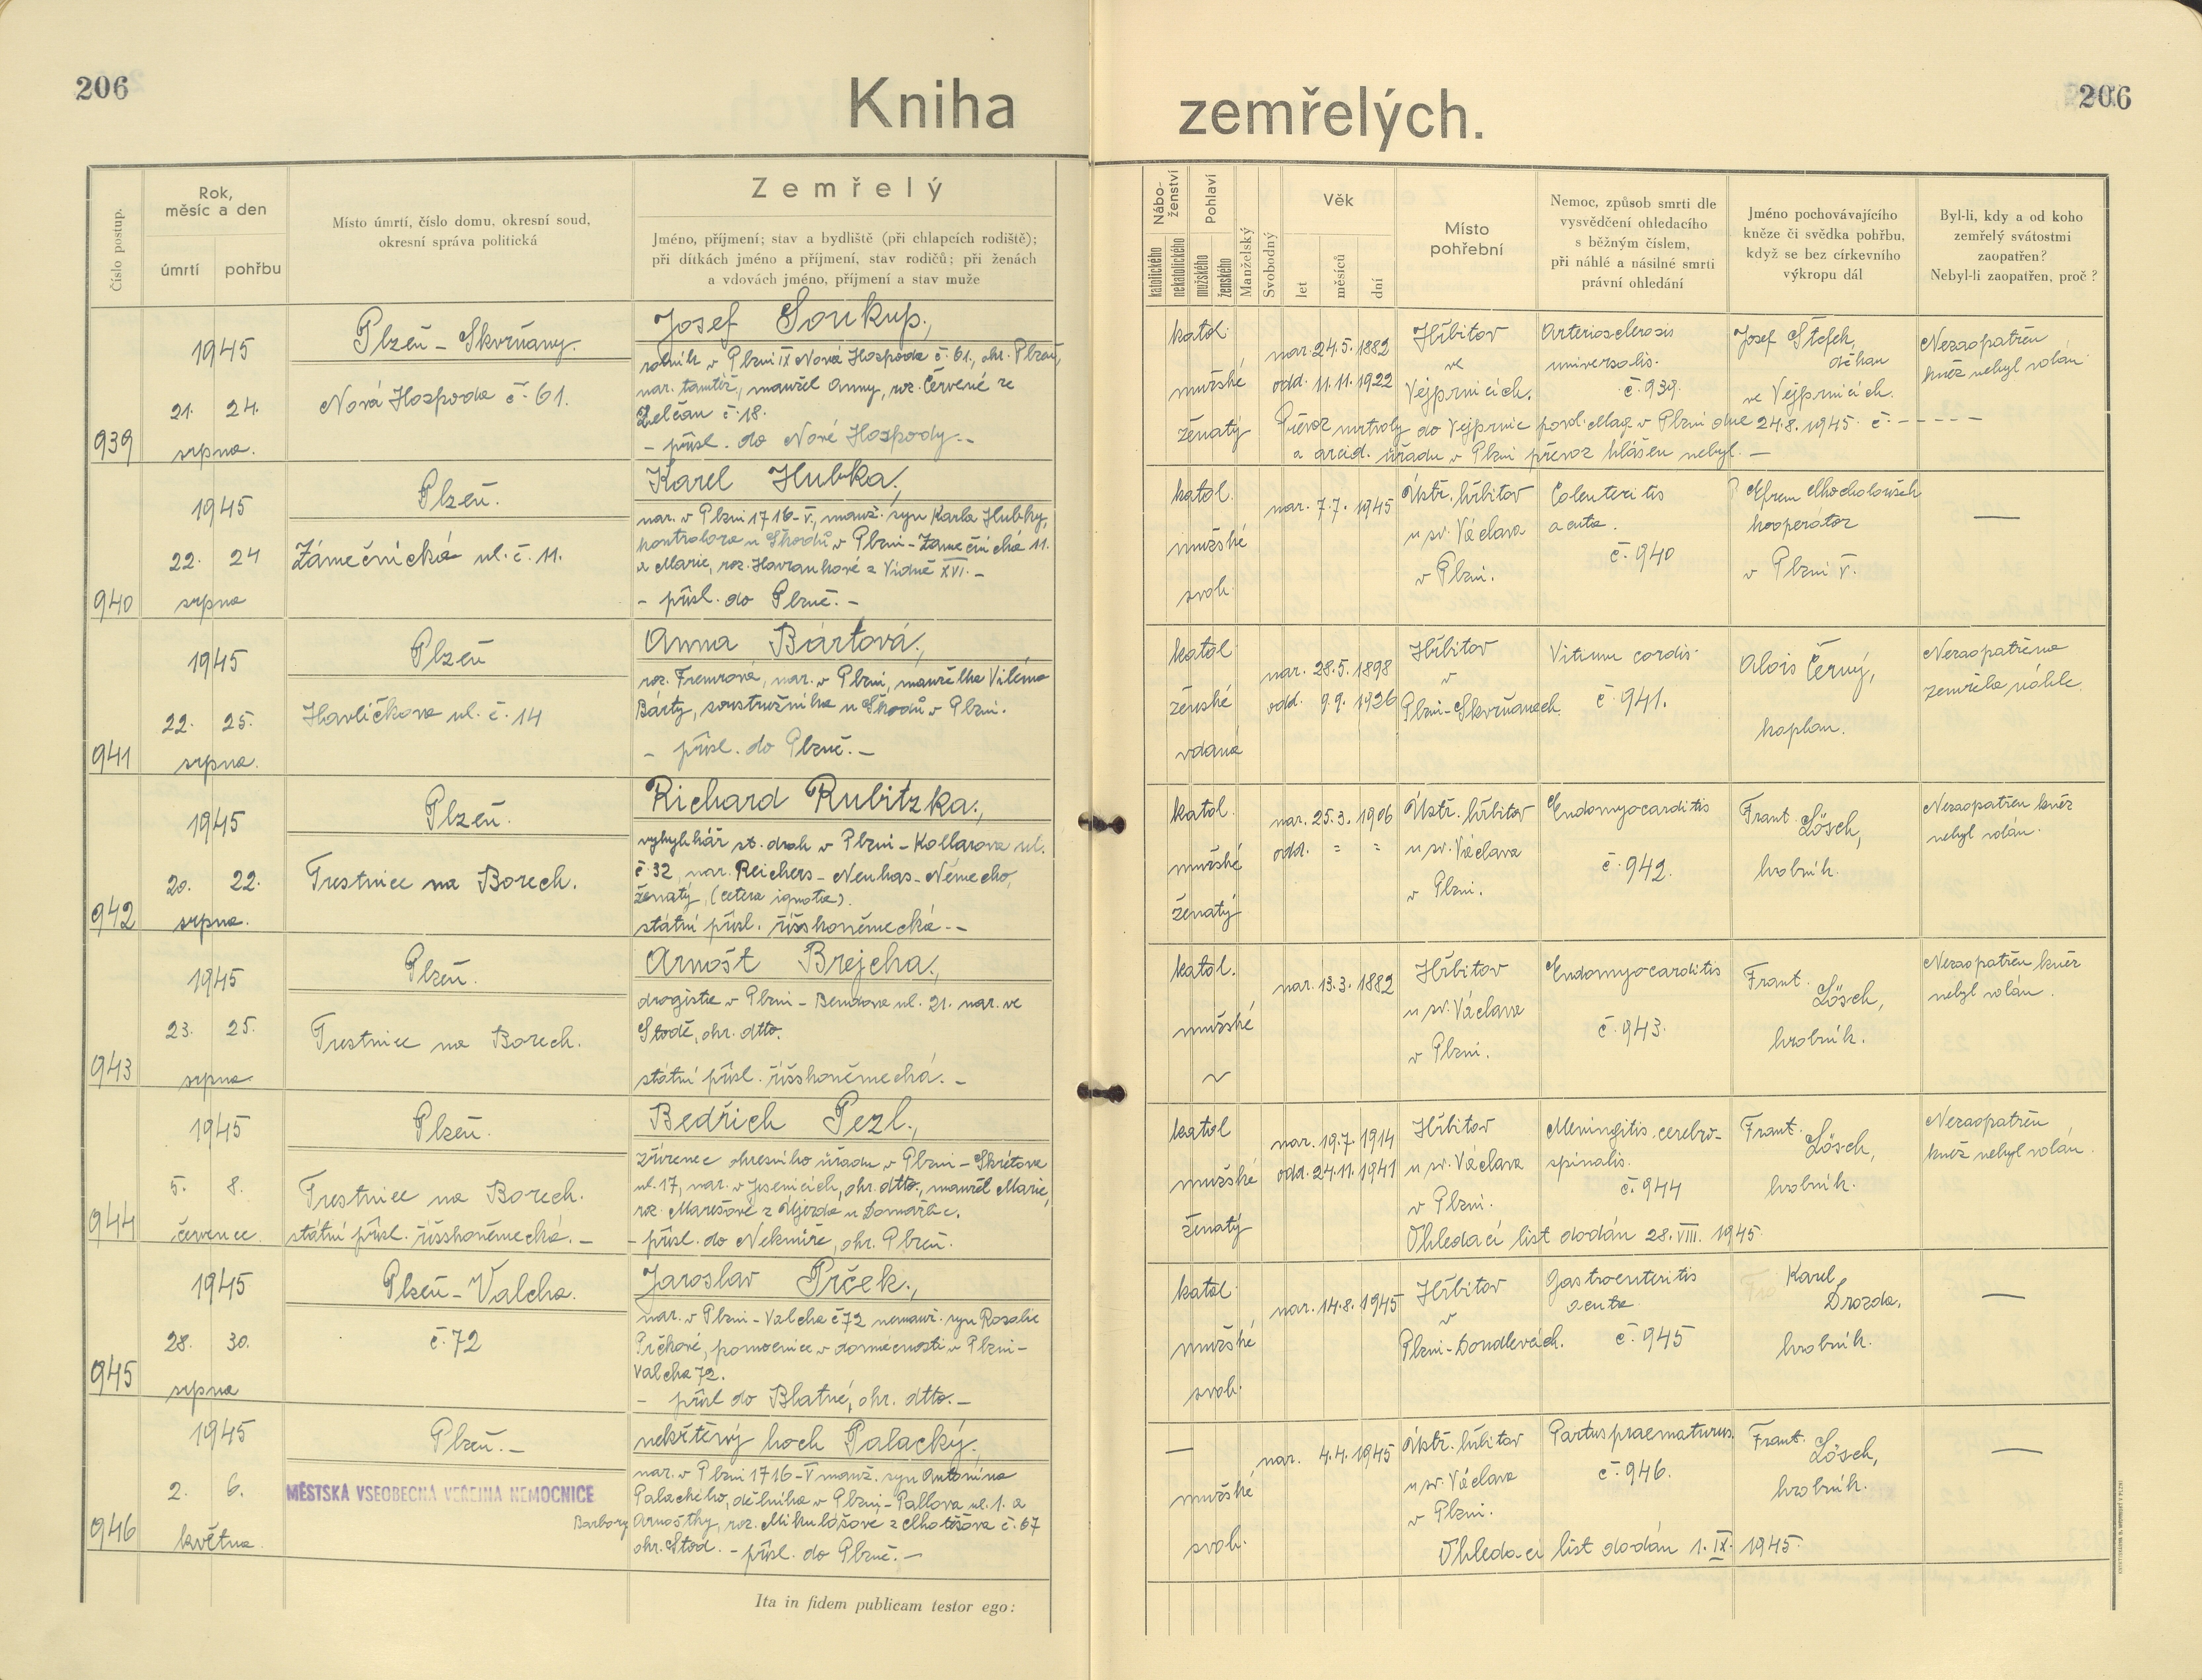 206
Kniha zemřelých.
206
Číslo postup.
Rok, měsíc a den
úmrtí
pohřbu
Místo úmrtí, číslo domu, okresní soud,
okresní správa politická
Zemřelý
Jméno, příjmení; stav a bydliště (při chlapcích rodiště);
při dítkách jméno a příjmení, stav rodičů; při ženách
a vdovách jméno, příjmení a stav muže
Nábo-
ženství
katolického
nekatolického
Pohlaví
mužského
ženského
Manželský
Svobodný
Věk
let
měsíců
dní
Místo
pohřební
Nemoc, způsob smrti dle
vysvědčení ohledacího
s běžným číslem,
při náhlé a násilné smrti
právní ohledání
Jméno pochovávajícího
kněze či svědka pohřbu,
když se bez církevního
výkropu dál
Byl-li, kdy a od koho
zemřelý svátostmi
zaopatřen?
Nebyl-li zaopatřen, proč?
939
1945
21. 24.
srpna.
Plzeň - Skvrňany.
Nová Hospoda č. 61.
Josef Soukup.,
rolník v Plzni IX Nová Hospoda č. 61., okr. Plzeň,
nar. tamtéž, manžel Anny, roz. Červené ze
Zelčan č. 18.
- přísl. do Nové Hospody.-
katol.
mužské
ženatý
nar. 24.5. 1882
odd. 11.11. 1922
Hřbitov
ve
Vejprnicích.
Arteriosclerosis
universalis.
č. 939.
Josef Štefek,
děkan
ve Vejprnicích.
Nezaopatřen
kněz nebyl volán.
Převoz mrtvoly do Vejprnic povol. Mag. v Plzni dne 24.8. 1945. č. - - - - -
a arcid. úřadu v Plzni převoz hlášen nebyl. -
940
1945
22. 24
srpna
Plzeň.
Zámečnická ul. č. 11.
Karel Hubka.,
nar. v Plzni 1716-V., manž. syn Karla Hubky,
kontrolora u Škodů v Plzni - Zámečnická 11.
a Marie, roz. Havrankové z Vídně XVI. -
- přísl. do Plzně. -
katol.
mužské
svob.
nar. 7.7. 1945
Ústř. hřbitov
u sv. Václava
v Plzni.
Colenteritis
acuta.
č. 940
P. Efrem
kooperátor
v Plzni V.
—
941
1945
22. 25.
srpna.
Plzeň
Havlíčkova ul. č. 14
Anna Bártová.,
nar. v Plzni, manželka Viléma
Bárty, soustružníka u Škodů v Plzni.
- přísl. do Plzně. -
katol
ženské
vdaná
nar. 28.5. 1898
odd. 9.9. 1926
Hřbitov
v
Plzni-Skvrňanech.
Vitium cordis.
č. 941.
Alois Černý,
kaplan.
Nezaopatřena
zemřela náhle.
942
1945
20. 22.
srpna.
Plzeň.
Trestnice na Borech.
Richard Rubitzka.,
výhybkář st. drah v Plzni - Kollárova ul.
č. 32, nar. Reichers - Neuhas - Německo,
ženatý, (cetera ignota).
státní přísl. říšskoněmecká. -
katol.
mužské
ženatý
nar. 25.3. 1906
odd. = =
Ústř. hřbitov
u sv. Václava
v Plzni.
Endomyocarditis
č. 942.
Frant. Lösch,
hrobník.
Nezaopatřen kněz
nebyl volán.
943
1945
23. 25.
srpna
Plzeň.
Trestnice na Borech.
Arnošt Brejcha.,
drogista v Plzni - Bendova ul. 21. nar. ve
Stodě, okr. dtto.
státní přísl. říšskoněmecká. -
katol.
mužské
~
nar. 13.3. 1882
Hřbitov
u sv. Václava
v Plzni.
Endomyocarditis
č. 943.
Frant. Lösch,
hrobník.
Nezaopatřen kněz
nebyl volán.
944
1945
5. 8.
července.
Plzeň.
Trestnice na Borech.
státní přísl. říšskoněmecká. -
Bedřich Pezl.,
zřízenec okresního úřadu v Plzni - Skrétova
ul. 17, nar. v Jesenicích, okr. dtto., manžel Marie,
roz. Marešové z Újezda u Domažlic.
- přísl. do Nekmíře, okr. Plzeň.
katol
mužské
ženatý
nar. 19.7. 1914
odd. 24.11. 1941
Hřbitov
u sv. Václava
v Plzni.
Meningitis cerebro-
spinalis.
č. 944
Frant. Lösch,
hrobník.
Nezaopatřen
kněz nebyl volán.
Ohledací list dodán 28. VIII. 1945
945
1945
28. 30.
srpna
Plzeň - Valcha.
č. 72
Jaroslav Prček.,
nar. v Plzni - Valcha č 72 nemanž. syn Rosalie
Prčkové, pomocnice v domácnosti v Plzni -
Valcha 72.
- přísl do Blatné, okr. dtto. -
katol.
mužské
svob.
nar. 14.8. 1945
Hřbitov
v
Plzni-Doudlevcích.
Gastroenteritis
acuta
č. 945
Karel
Drozda,
hrobník.
—
946
1945
2. 6.
května.
Plzeň. -
MĚSTSKÁ VŠEOBECNÁ VEŘEJNÁ NEMOCNICE
nekřtěný hoch Palacký.
nar. v Plzni 1716-V manž. syn Antonína
Palackého, dělníka v Plzni - Pallova ul. 1. a
Barbory Arnoštky, roz. Mikulášové z Lhotěšova č. 67
okr. Stod. - přísl. do Plzně. -
—
mužské
svob.
nar. 4.4. 1945
Ústř. hřbitov
u sv. Václava
v Plzni.
Partus praematurus.
č. 946.
Frant. Lösch,
hrobník.
—
Ohledací list dodán 1. IX. 1945.
Ita in fidem publicam testor ego: